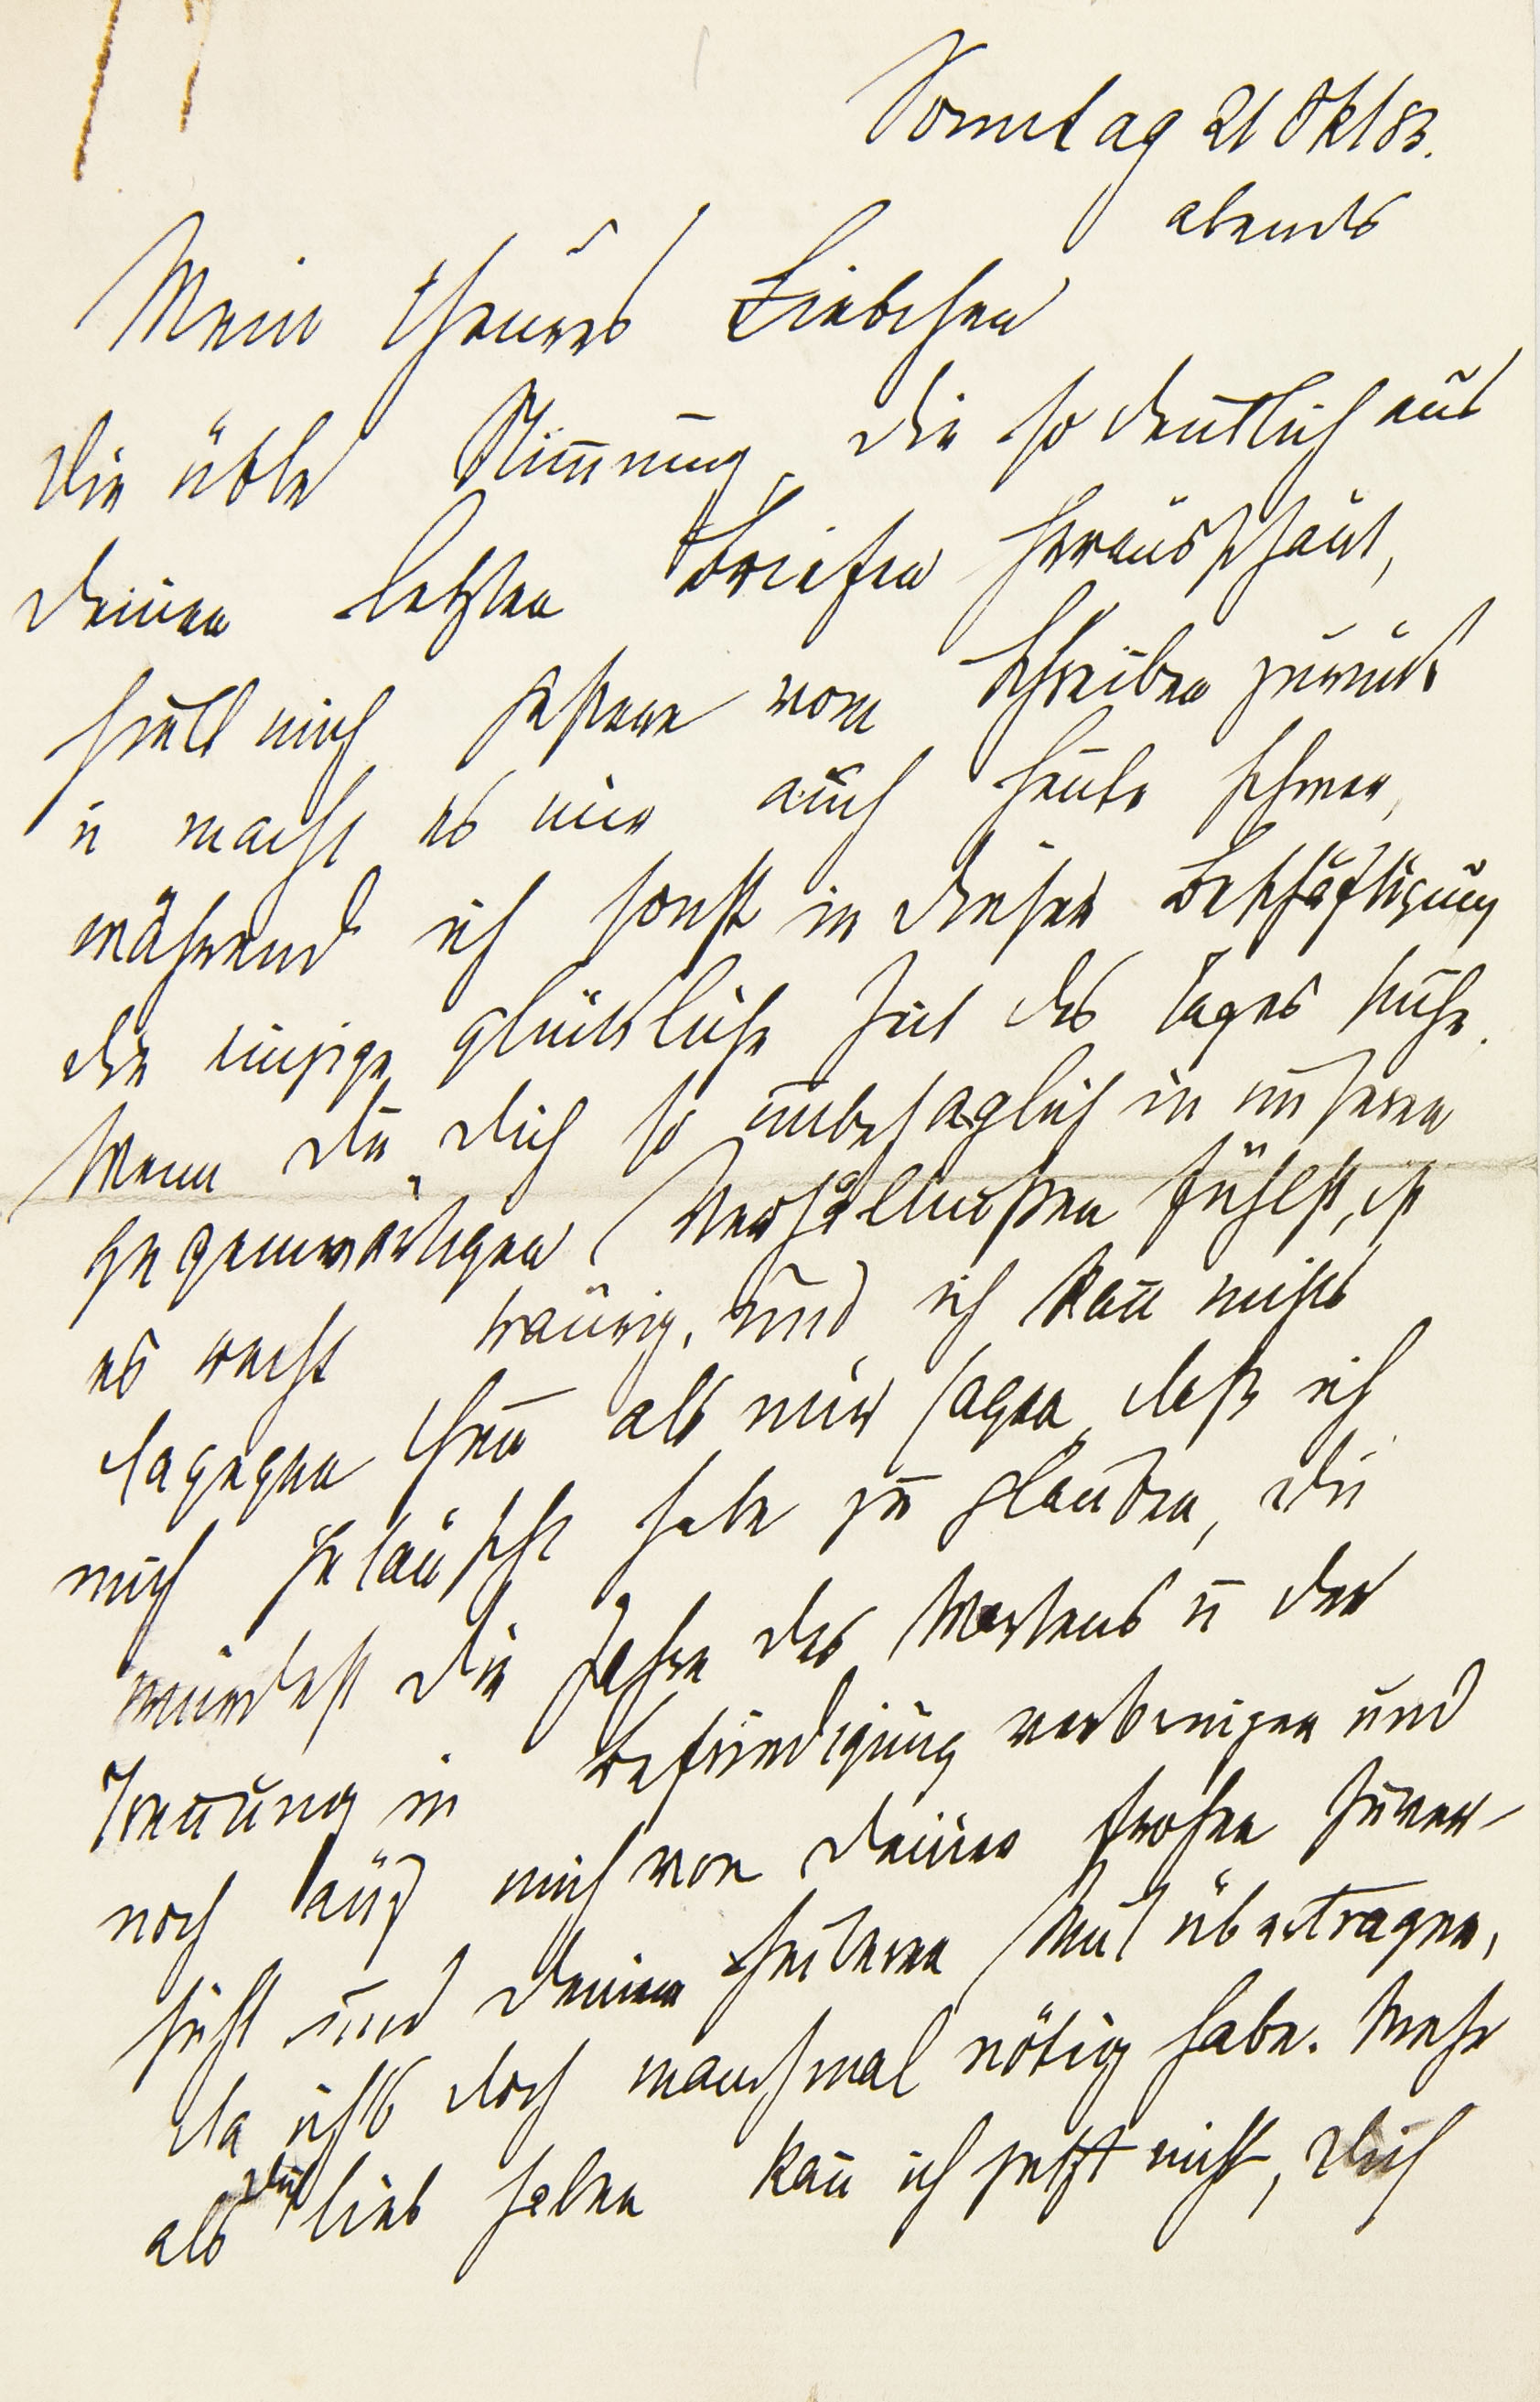 Sonntag 21 Okt 83.
abends
Mein theures Liebchen
Die üble Stimmung, die so deutlich aus
Deinen letzten Briefen herausschaut,
hielt mich gestern vom Schreiben zurück
u macht es mir auch heute schwer,
während ich sonst in dieser Beschäftigung
die einzige glückliche Zeit des Tages suche.
Wenn Du Dich so unbehaglich in unseren
gegenwärtigen Verhältnißen fühlst, ist
es recht traurig, und ich kañ nichts
dagegen thun als mir sagen, daß ich
mich getäuscht habe zu glauben, Du
würdest die Jahre des Wartens u der
Treñung in Befriedigung verbringen und
noch auf mich von Deiner frohen Zuver-
sicht und Deinem heiteren Mut übertragen,
da ichs doch manchmal nötig habe. Mehr
als Dich lieb haben kañ ich jetzt nicht, Dich